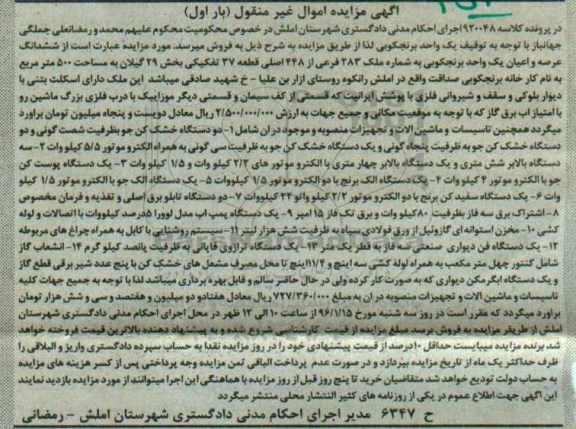 آگهی مزایده اموال غیر منقول (بار اول)
در پرونده کلاسه ۹۲۰۰۴۸ اجرای احکام مدنی دادگستری شهرستان املش در خصوص محکومیت محکوم علیهم محمد و رمضانعلی جملگی
جهانباز با توجه به توقیف یک واحد برنجکوبی لذا از طریق مزایده به شرح ذیل به فروش میرسد. مورد مزایده عبارت است از ششدانگ
عرصه و اعیان یک واحد برنجکوبی به شماره ملک ۲۸۳ فرعی از ۴۴۸ اصلی قطعه ۳۷ تفکیکی بخش ۲۹ گیلان به مساحت ۵۰۰ متر مربع
به نام کار خانه برنجکوبی صداقت واقع در املش رانکوه روستای ازار بن علیا - خ شهید صادقی میباشد این ملک دارای اسکلت بتنی با
دیوار بلوکی و سقف و شیروانی فلزی با پوشش ایرانیت که قسمتی از کف سیمان و قسمتی دیگر موزاییک با درب فلزی بزرگ ماشین رو
با امتیاز اب برق گاز که با توجه به موقعیت مکانی و جمیع جهات به ارزش ۲/۵۰۰/۰۰۰/۰۰۰ ریال معادل دویست و پنجاه میلیون تومان براورد
میگردد همچنین تاسیسات و ماشین الات و تجهیزات منصوبه و موجود در ان شامل ۱- دو دستگاه خشک کن جو بظرفیت شصت گونی و دو
دستگاه خشک کن جو به ظرفیت پنجاه گونی و یک دستگاه خشک کن جو به ظرفیت سی گونی به همراه الکترو موتور ۵/۵ کیلو وات ۲-سه
دستگاه بالابر شش متری و یک دستگاه بالابر چهار متری با الکترو موتور های ۲/۲ کیلو وات و ۱/۵ کیلو وات ۳- یک دستگاه پوست کن
جو با الکترو موتور ۴ کیلو وات ۴- یک دستگاه الک برنج با دو الکترو موتور ۱/۵ کیلووات ۵- یک دستگاه الک جو با الکترو موتور ۱/۵ کیلو
وات ۶- یک دستگاه سفید کن برنج با دو الکترو موتور ۲/۲ کیلو واتو ۲۲ کیلووات ۷- دو دستگاه تابلو برق اصلی و تغذیه و فرمان مخصوص
۸- اشتراک برق سه فاز بظرفیت ۸۰کیلو وات و برق تک فاز ۱۵امپر ۹- یک دستگاه پمپ اب مدل لوورا ۵درصد کیلووات با اتصالات و لوله
کشی ۱۰- مخزن استوانه ای گازوئیل از ورق فولادی سیاه به ظرفیت شش هزار لیتر ۱۱- سیستم روشنایی با کابل به همراه چراغ های مربوطه
۱۲- یک دستگاه فن دیواری صنعتی سه فاز به قطر یک متر ۱۳- یک دستگاه ترازوی قاپانی به ظرفیت پانصد کیلو گرم ۱۴- انشعاب گاز
شامل کنتور چهل متر مکعب به همراه لوله کشی سه اینچ و ۱۱/۴اینچ تا محل مصرف مشعل های خشک کن با پنج عدد شیر برقی قطع گاز
و یک دستگاه ابگرمکن دیواری که به صورت کار کرده ولی در حال حاضر سالم و قابل بهره برداری میباشد لذا با توجه به جمیع جهات کلیه
تاسیسات و ماشین الات و تجهیزات منصوبه در ان به مبلغ ۷۲۷/۳۶۰/۰۰۰ ریال معادل هفتادو دو میلیون و هفتصد و سی و شش هزار تومان
براورد میگردد که مقرر است در روز سه شنبه مورخ ۹۶/۱/۱۵ از ساعت ۱۰ الی ۱۲ ظهر در محل اجرای احکام مدنی دادگستری شهرستان
املش از طریقر مزایده به فروش برسد مبلغ مزایده از قیمت کارشناسی شروع شده و به پیشنهاد دهنده بالاترین قیمت فروخته خواهد
شد. برنده مزایده میبایست حداقل ۱۰درصد از قیمت پیشنهادی خود را در روز مزایده نقدا به حساب سپرده دادگستری واریز و البلاقی را
ظرف حداکثر یک ماه از تاریخ مزایده بپردازد و در صورت عدم پرداخت الباقی ثمن مزایده وجه پرداختی پس از کسر هزینه های مزایده
به حساب دولت تودیع خواهد شد متقاضیان خرید تا پنج روز قبل از روز مزایده با هماهنگی این اجرا میتوانند از مورد مزایده بازدید نمایند
این آگهی جهت اطلاع عموم در یکی از روزنامه های کثیر الانتشار محلی منتشر میگردد
ح ۶۳۴۷ مدیر اجرای احکام مدنی دادگستری شهرستان املش - رمضانی